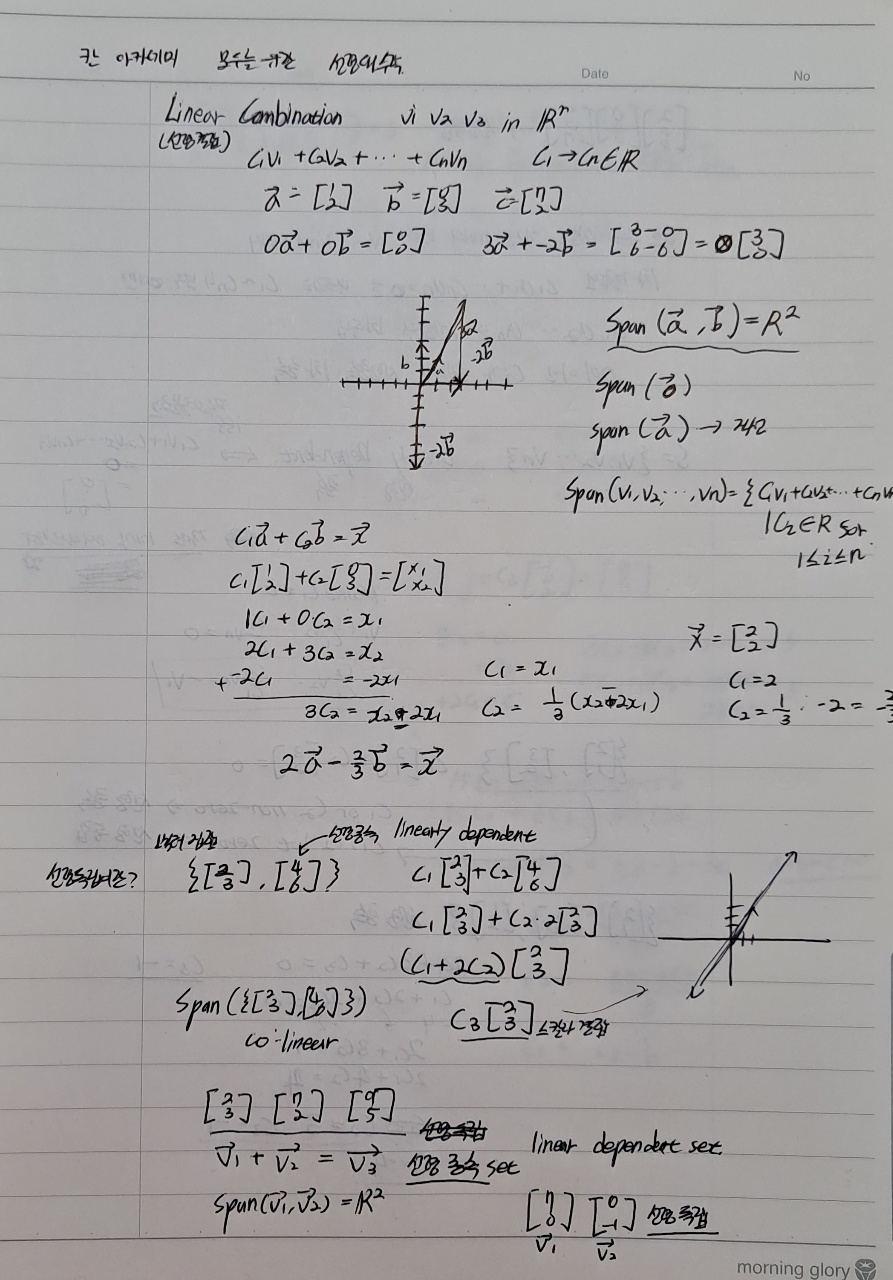 칸 아카데미 모두를 위한 선형대수학
Date No
Linear Combination v1 v2 v3 in ℝⁿ
(선형결합)
C1V1 + C2V2 + ⋯ + CnVn C1 → Cn ∈ ℝ
a⃗ = [1 2] b⃗ = [0 3] c⃗ = [7 2]
0a⃗ + 0b⃗ = [0 0] 3a⃗ + -2b⃗ = [3-0 6-6] = [3 0]
Span (a⃗, b⃗) = R²
b a -2b⃗
Span (0⃗)
span (a⃗) →
-2b⃗
Span(v1, v2, ⋯, vn) = {C1v1 + C2v2 + ⋯ + Cnvn
| C2 ∈ R for
1 ≤ i ≤ n
C1a⃗ + C2b⃗ = x⃗
C1[1 2] + C2[0 3] = [x1 x2]
1C1 + 0C2 = x1
2C1 + 3C2 = x2
+ -2C1 = -2x1
3C2 = x2 - 2x1
C1 = x1
C2 = 1/3 (x2 - 2x1)
x⃗ = [2 2]
C1 = 2
C2 = 1/3 · -2 = -2/3
2a⃗ - 2/3 b⃗ = x⃗
벡터 집합 선형종속 linearly dependent
선형독립이란? {[2 3], [4 6]} C1[2 3] + C2[4 6]
C1[2 3] + C2·2[2 3]
(C1 + 2C2)[2 3]
Span({[2 3], [4 6]}) C3[2 3] 스칼라 결합
co-linear
[2 3] [7 2] [9 5]
선형독립
v⃗1 + v⃗2 = v⃗3 선형 종속 set linear dependent set
Span(v⃗1, v⃗2) = R²
[7 0] [0 -1] 선형 독립
v⃗1 v⃗2
morning glory